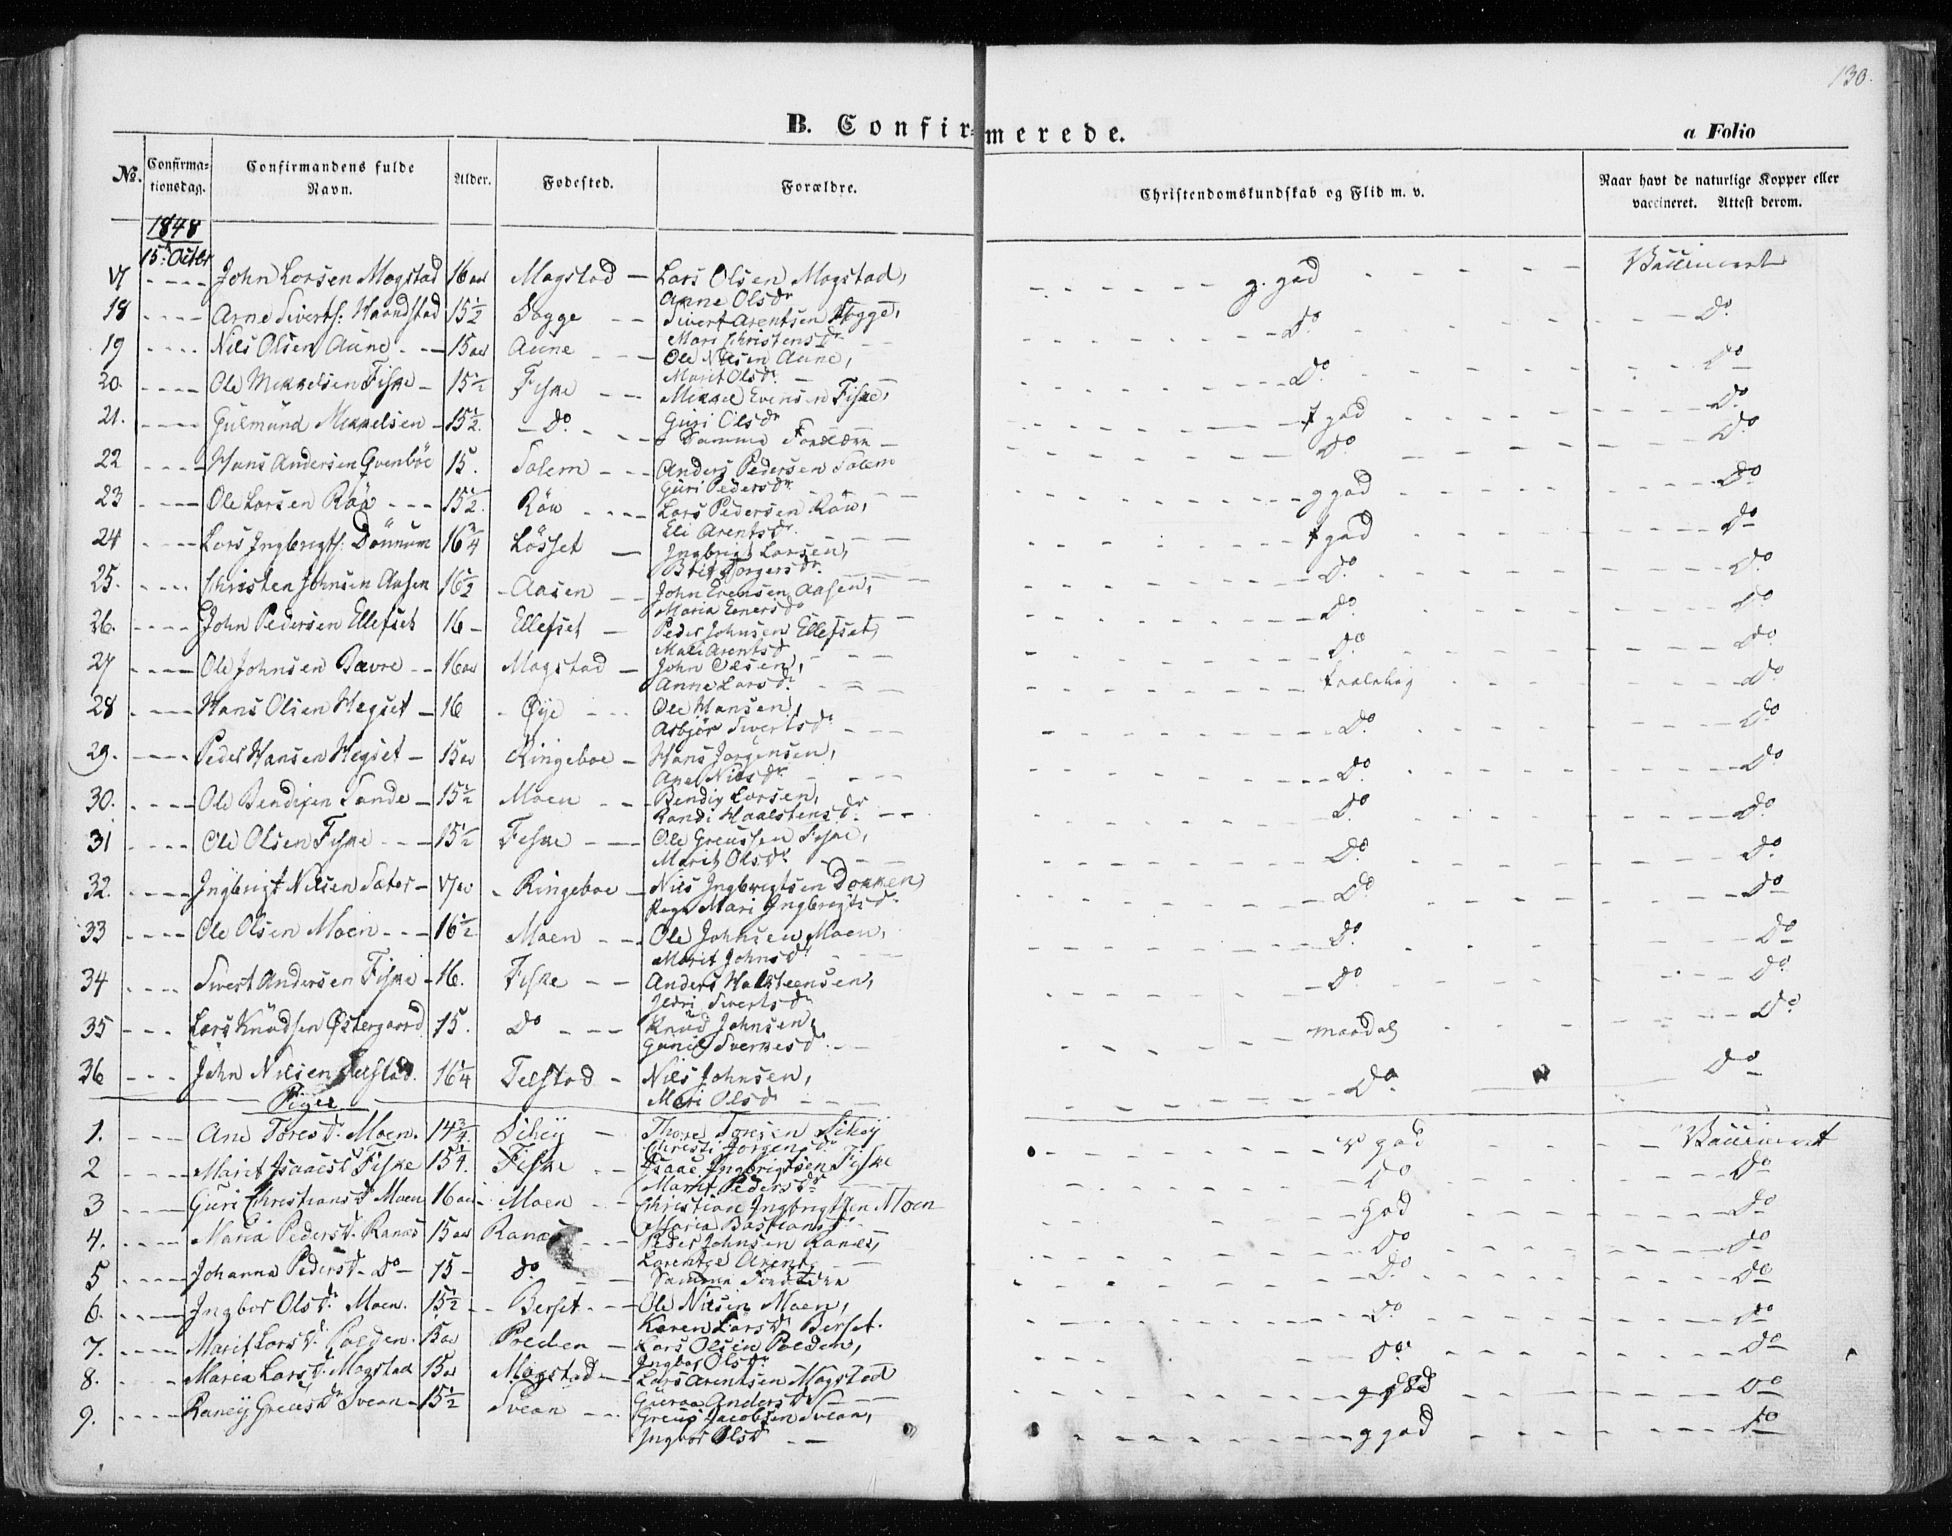 130.
B. Confirmerede.
a Folio
No. Confirmationsdag. Confirmandens fulde Navn. Alder. Fødested. Forældre. Christendomskundskab og Flid m. v. Naar havt de naturlige Kopper eller vaccineret. Attest derom.
1848
15. Octbr
17 John Larsen Magstad 16 aar Magstad Lars Olsen Magstad, g. god Vaccineret
Anne Olsdr
18 Arne Siverts: Haandstad 15½ Bogge Sivert Arentsen Bogge, Do Do
Mari Christensdr
19 Nils Olsen Aune 15 aar Aune Ole Nilsen Aune, Do Do
Marit Olsdr
20. Ole Mikkelsen Fiske 15½ Fiske Mikkel Evensen Fiske, t god Do
Guri Olsdr
21. Gulmund Mikkelsen 15½ Do Samme Forældre Do Do
22 Hans Andersen Qvenbøe 15. Solem Anders Pedersen Solem g god Do
Guri Pedersdr
23 Ole Larsen Röw 15½ Röw Lars Pedersen Röw, t god Do
Eli Arentsdr
24 Lars Ingbrigts: Dönnum 16¾ Lösset Ingbrigt Larsen, Do Do
Brit Torgersdr
25. Christen Johnsen Aasen 16½ Aasen John Evensen Aasen, Do Do
Maria Einersdr
26. John Pedersen Ellefset 16 Ellefset Peder Johnsen Ellefset, Do Do
Mali Arentsd
27 Ole Johnsen Bævre 16 aar Magstad John Olsen, taalelig Do
Anne Larsdr
28 Hans Olsen Hegset 16 Øye Ole Hansen, Do Do
Asbjør Sivertsdr
29. Peder Hansen Hegset 15 aar Ringeboe Hans Jorgensen, Do Do
Ane Nilsdr
30. Ole Bendixen Sande 15½ Moen Bendix Larsen, Do Do
Randi Haalstensdr
31 Ole Olsen Fiske 15½ Fiske Ole Greussen Fiske, Do Do
Marit Olsdr
32. Ingbrigt Nilsen Sæter 17 aar Ringeboe Nils Ingbrigtsen Dokken, Do Do
Mari Ingbrigtsdr
33 Ole Olsen Moen 16½ Moen Ole Johnsen Moen, Do Do
Marit Johnsdr
34 Sivert Andersen Fiske 16. Fiske Anders Halsteensen, Do Do
Sivertsdr
35 Lars Knudsen Østergaard 15. Do Knud Johnsen, maadel Do
Gunil Sverkesdr
36 John Nilsen Telstad 16¼ Telstad Nils Johnsen, Do Do
Mari Olsd
Piger
1. Ane Toresdr Moen. 14¾ Sikey Thore Toresen Sikey god Vaccineret
Christi Jorgensdr
2 Marit Isaacsd Fiske 15¼. Fiske Isaac Ingbrigtsen Fiske Do Do
Marit Pedersdr
3 Guri Christiansdr Moen 16 aar Moen Christian Ingbrigtsen Moen god Do
Maria Bastiansdr
4. Maria Pedersdr Ranæs 15 aar Ranæs Peder Johnsen Ranæs, Do Do
Lorentze Arent
5 Johanna Pedersd Do 15 Do Samme Forældre Do Do
6. Ingbor Olsdr Moen. 15½ Berset Ole Nilsen Moen, Do Do
Karen Larsd Berset.
7. Marit Larsdr Polden 15 aar Polden Lars Olsen Polden, Do Do
Ingbor Olsdr
8. Maria Larsdr Magstad 15 aar Magstad Lars Arentsen Magstad g god Do
Andersdr
9. Raney Greusdr Svean 15½ Svean Greus Jacobsen Svean, g god Do
Ingbor Olsd